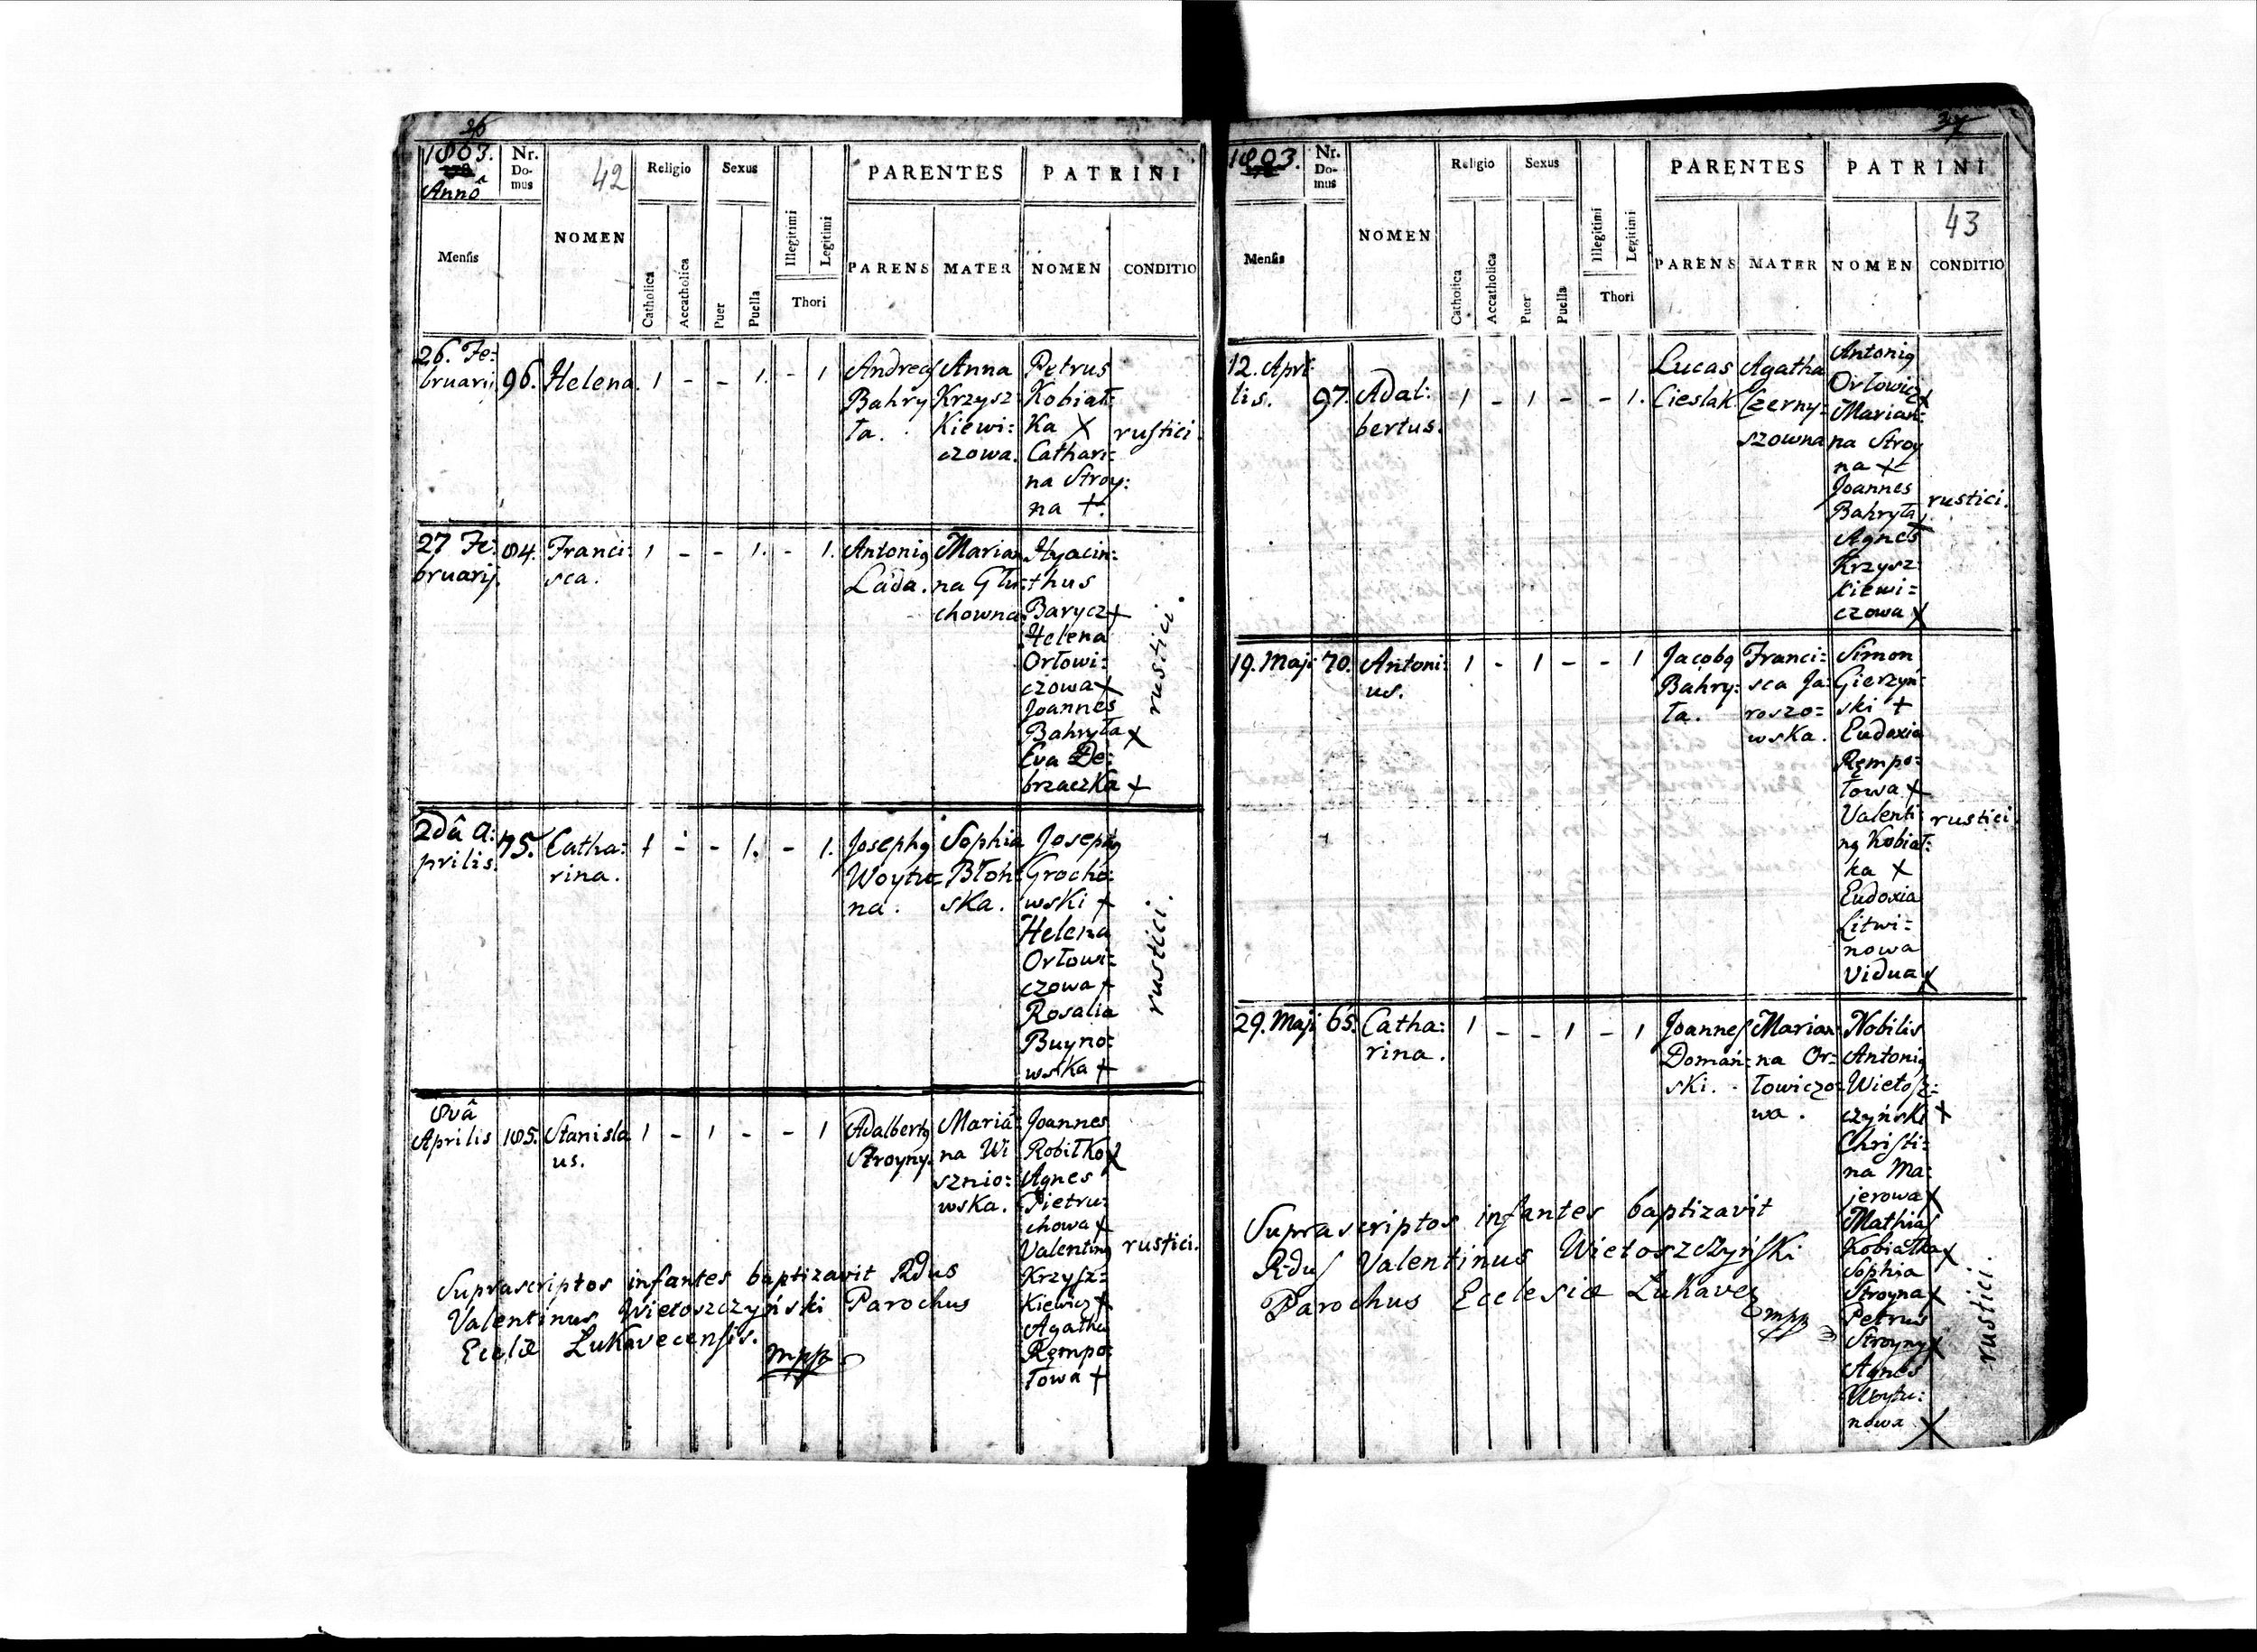 26
1803.
Annô
Nr.
Do-
mus
42
Religio
Sexus
PARENTES
PATRINI
Mensis
NOMEN
Catholica
Accatholica
Puer
Puella
Illegitimi
Legitimi
Thori
PARENS
MATER
NOMEN
CONDITIO
26. Fe:
bruarij
96.
Helena.
1 - - 1. - 1
Andreas
Bahry
ła.
Anna
Krzysz
kiewi:
czowa.
Petrus
Kobiał:
ka X
Cathari:
na Stroy:
na +.
rustici.
27 Fe:
bruarij.
84.
Franci:
sca.
1 - - 1. - 1.
Antonig
Lada.
Marian
na Głu:
chowna
Hyacin:
thus
Barycz +
Helena
Orłowi:
czowa +
Joannes
Bahryła X
Eva De:
brzaczka +
rustici.
2dâ A:
prilis.
75.
Catha:
rina.
1 - - 1. - 1.
Josephg
Woytu:
na.
Sophia
Błoń:
ska.
Josephg
Grocho:
wski +
Helena
Orłowi:
czowa +
Rosalia
Buyno:
wska +
rustici.
8vâ
Aprilis
105.
Stanisla
us.
1 - 1 - - 1
Adalbertg
Stroyny.
Mariã
na Wi
sznio:
wska.
Joannes
Robiłko X
Agnes
Pietru:
chowa +
Valenting
Krzysz:
kiewicz +
Agatha
Rempo:
łowa +
rustici.
Suprascriptos infantes baptizavit Rdus
Valentinus Wietoszczyński Parochus
Ecclæ Lukavecensis.
mpp
37
1803.
Nr.
Do-
mus
Religio
Sexus
PARENTES
PATRINI
43
Mensis
NOMEN
Catholica
Accatholica
Puer
Puella
Illegitimi
Legitimi
Thori
PARENS
MATER
NOMEN
CONDITIO
12. Apri:
lis.
97.
Adal:
bertus.
1 - 1 - - 1.
Lucas
Cieslak
Agatha
Czerny:
szowna
Antonig
Orłowicz X
Marian:
na Stroy
na +
Joannes
Bahryła X
Agnes
Krzysz:
kiewi:
czowa X
rustici.
19. Maji
70.
Antoni:
us.
1 - 1 - - 1
Jacobg
Bahry:
ła.
Franci:
sca Ja:
roszo:
wska.
Simon
Gierzyń:
ski +
Eudoxia
Rempo:
łowa +
Valenti:
ng Kobiał:
ka X
Eudoxia
Litwi:
nowa
Vidua X
rustici
29. Maji
65.
Catha:
rina.
1 - - 1 - 1
Joannes
Domań:
ski.
Marian:
na Or:
łowiczo:
wa.
Nobilis
Antonig
Wietosz:
czyński X
Christi:
na Ma:
jerowa X
Mathias
Kobiałka X
Sophia
Stroyna X
Petrus
Stroyny X
Agnes
Woytu:
nowa X
rustici.
Suprascriptos infantes baptizavit
Rdus Valentinus Wietoszczyński
Parochus Ecclesiæ Lukavec
mpp